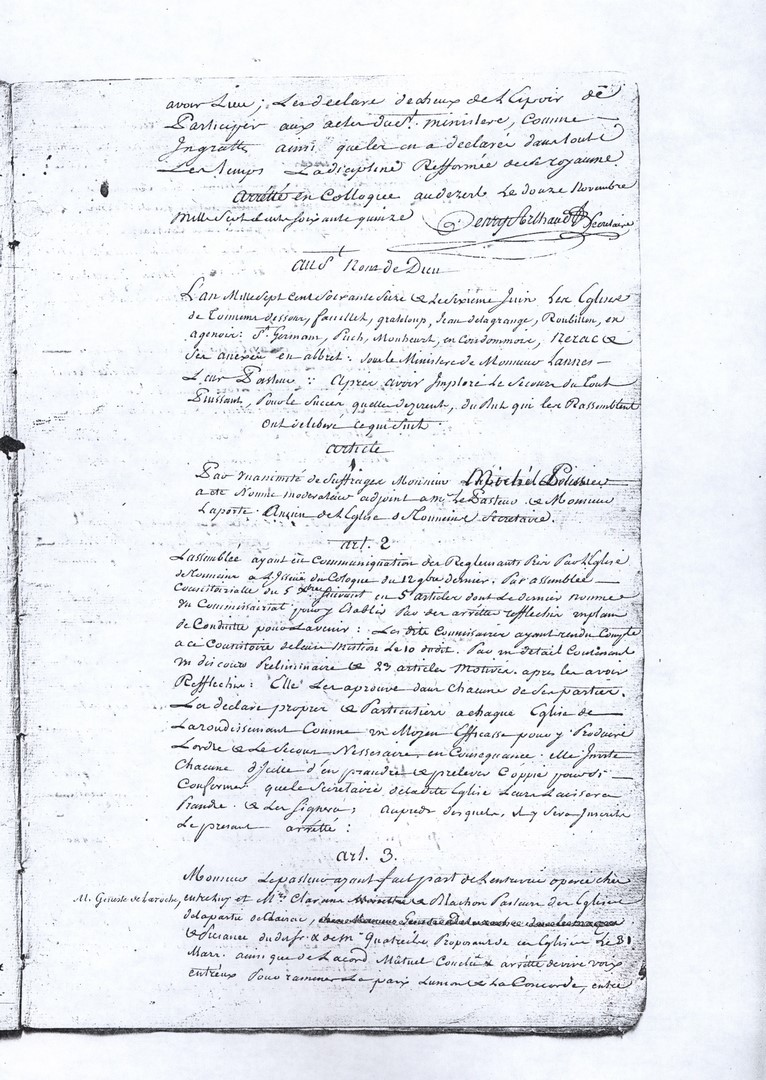 avoir Lieu; Les declare decheux de L'Espoir de
Participer aux actes du St. ministere, Comme
Ingratte ainsi que les en a declarée dans tout
Les temps La disiptine Refformée de ce royaume
arretté en Colloque au dezert Le douze Novembre
Mille Sept Cents soixante quinze Secretaire
au St Nom de Dieu
L'an Mille Sept Cent Soixante Seize & Le Sixieme Juin Les Eglises
de Tonneins dessous, fauillet, grateloup, Jean delagrange, Roubillon, en
agenois: St. Germain, Puch, Monheurt, en Condommois, Nerac &
Ses anexes en albret: Sous le Ministere de Monsieur Lannes
Leur Pasteur: Apres avoir Imploré Le Secours du Tout
Puissant, Pour le Succes quelle dezirent, du But qui les Rassemblent
ont delibere ce qui Suit
article
Par Unanimité de Suffrages Monsieur Michel
a eté Nommé moderateur adjoint a Mr. Le Pasteur & Monsieur
Laporte Ancien de L'Eglise de Tonneins Secretaire.
art. 2
L'assemblée ayant eu Communiquation des Reglements Pour L'Eglise
de Tonneins a L'Issue du Cologue du 12 9bre dernier. Par assemblée
Consistorialle du 5 Xbre suivant en 5 articles dont Le dernier nomme
du Commissariat pour y Etablir Par des arretté refflechir un plan
de Conduitte pour L'avenir: Les dits Commissaires ayant rendu Compte
a ce Consistoire de leur mission Le 10 dudit. Par un detail Contenant
un discours Preliminaire & 23 articles Motivés. apres les avoir
Refflechir: Elle Les aprouve dans Chacune de Ses parties.
Les declare propres & Particuliers a chaque Eglise de
L'arondissement Comme un Moyen Efficasse pour y Produire
L'ordre & Le Secour Nesseraire, en Consequance elle Invite
Chacune d'Icelle d'en prandre & prelever Coppie pour S'i
Conformer que le Secretaire de ladite Eglise Leur Laissera
Prandre & Les Signera; aupreds desquels, il y Sera Inscrit
Le presant arretté:
art. 3.
Monsieur Le pasteur ayant fait part de L'entrevue operée chés
M. Grenste de Laroche, entre Luy et Mrs. Clarenne & Blachon Pasteurs des Eglises
de la partie de Clairac,
& Presance du du fr. & de Mr. Quatreils, Proposant de ces Eglises Le 31
Mars. ainsi que de L'acord Mutuel Conclu & arretté de vive voix
entreux Pour ramener La paix Lunion & La Concorde, entre